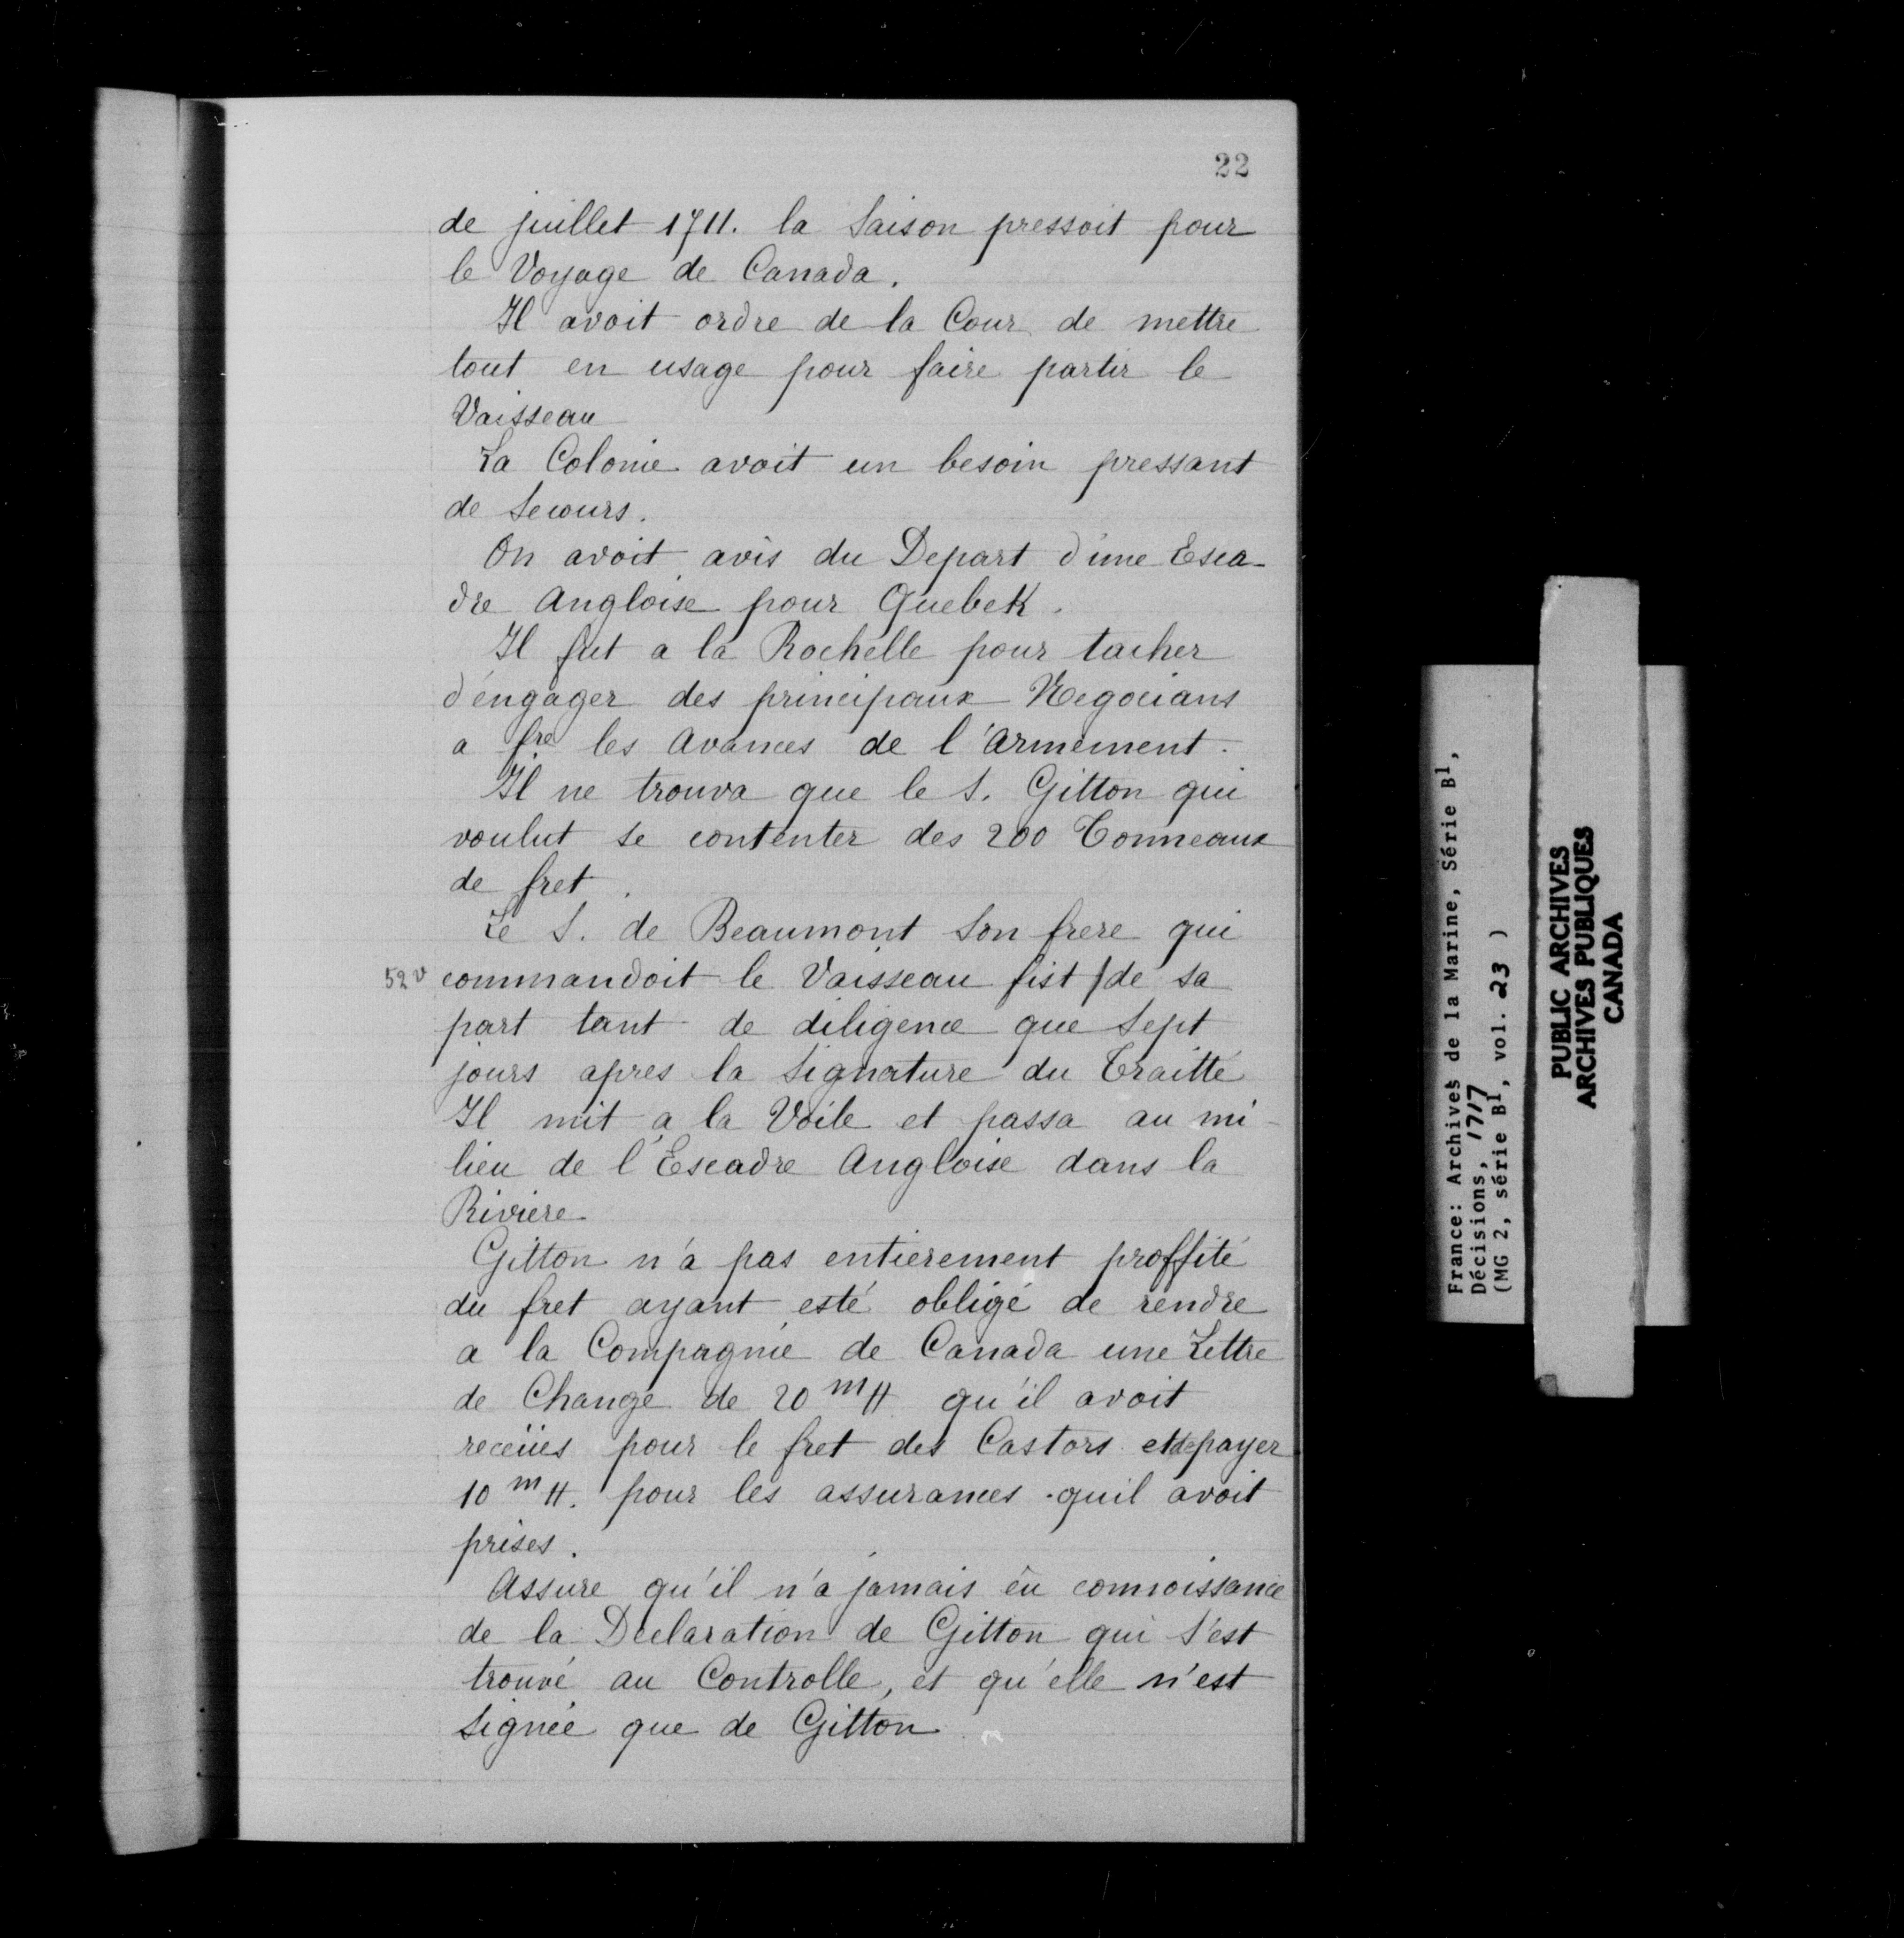 22
de juillet 1711. la Saison pressoit pour
le Voyage de Canada.
Il avoit ordre de la Cour de mettre
tout en usage pour faire partir le
Vaisseau
La Colonie avoit un besoin pressant
de Secours.
On avoit avis du Depart d'une Esca-
dre Angloise pour Quebek.
Il fut a la Rochelle pour tacher
d'engager des principaux Negocians
a fre les Avances de l'Armement.
Il ne trouva que le S. Gitton qui
voulut se contenter des 200 Tonneaux
de fret.
Le S. de Beaumont Son frere qui
52v commandoit le Vaisseau fist / de sa
part tant de diligence que Sept
jours apres la Signature du Traitté
Il mit a la Voile et passa au mi-
lieu de l'Escadre Angloise dans la
Riviere
Gitton n'a pas entierement proffité
du fret ayant esté obligé de rendre
a la Compagnie de Canada une Lettre
de Change de 20 m ₶ qu'il avoit
receües pour le fret des Castors et de payer
10 m ₶. pour les assurances quil avoit
prises.
Assure qu'il n'a jamais êu connoissance
de la Declaration de Gitton qui s'est
trouvé au Controlle, et qu'elle n'est
Signée que de Gitton
France: Archives de la Marine, Série B1,
Décisions, 1717
(MG 2, série B1, vol. 23 )
PUBLIC ARCHIVES
ARCHIVES PUBLIQUES
CANADA